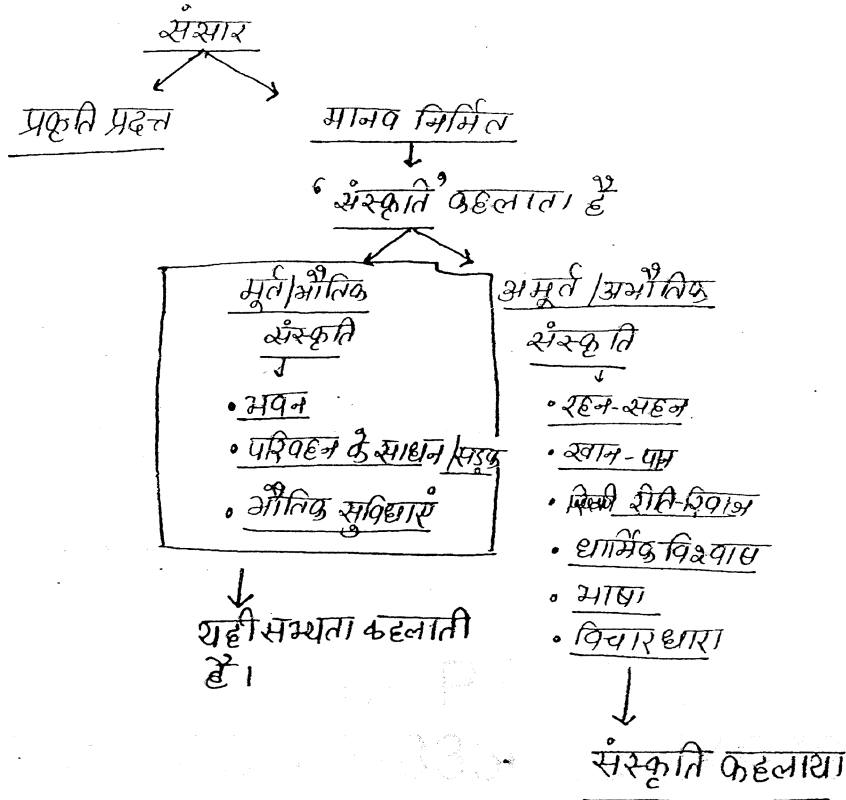 संसार
प्रकृति प्रदत्त
मानव निर्मित
'संस्कृति' कहलाता है
मूर्त/भौतिक
संस्कृति
• भवन
• परिवहन के साधन/सड़क
• भौतिक सुविधाएं
यही सभ्यता कहलाती
है।
अमूर्त/अभौतिक
संस्कृति
• रहन-सहन
• खान-पान
• रीति-रिवाज
• धार्मिक विश्वास
• भाषा
• विचारधारा
संस्कृति कहलाया